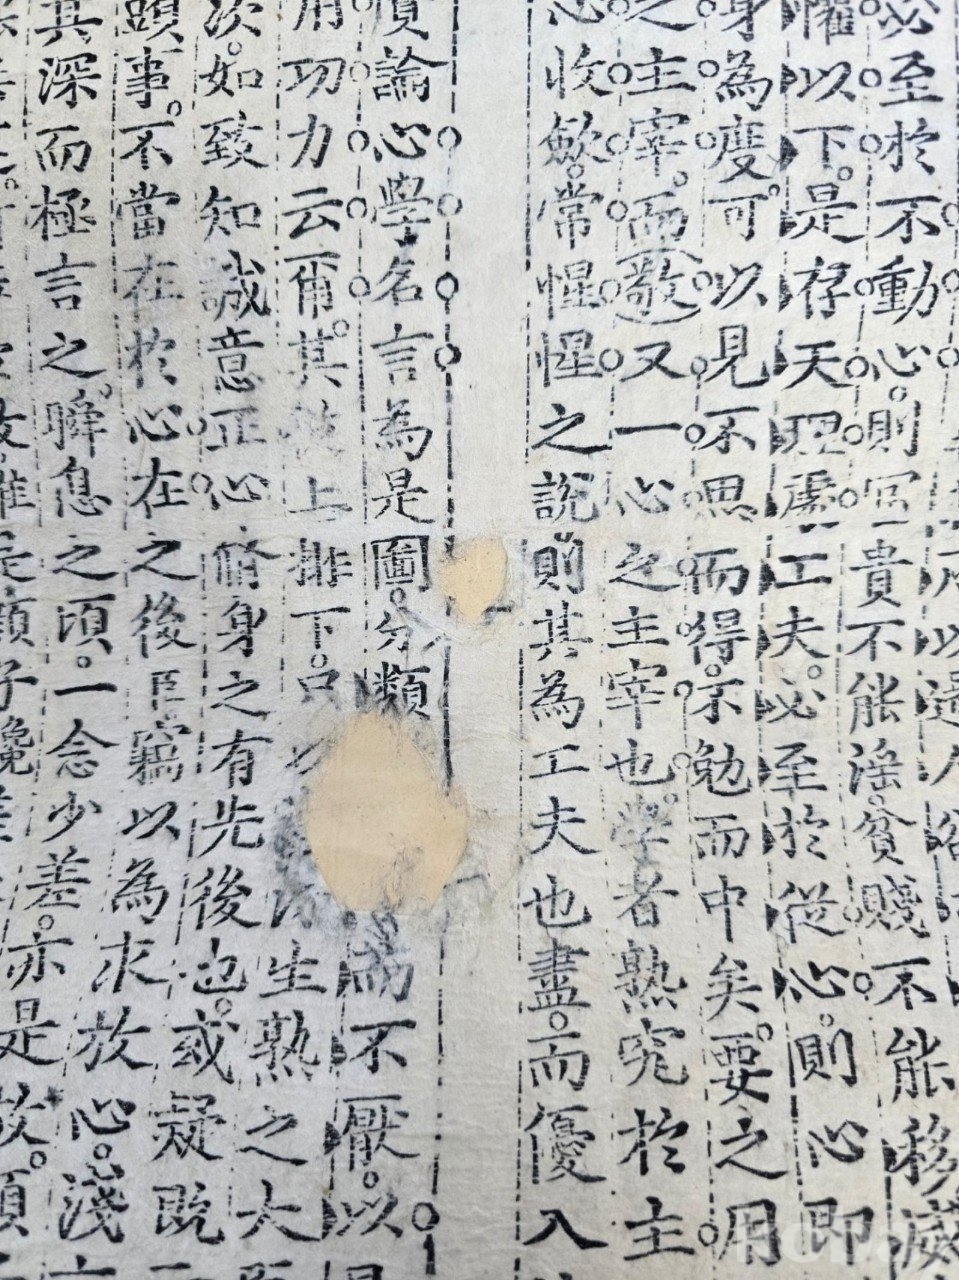 以遏人欲
必至於不動心則富貴不能淫貧賤不能移威
懼以下是存天理處工夫必至於從心則心即
身為度可以見不思而得不勉而中矣要之用
之主宰而敬又一心之主宰也學者熟究於主
心收斂常惺惺之說則其為工夫也盡而優入
復論心學名言為是圖分類 而不厭以
用功力云爾其 上排下只 生熟之大
次如致知誠意正心修身之有先後也或疑既
頭事不當在於心在心在之後臣竊以為求放心淺
其深而極言之瞬息之頃一念少差亦是放顏